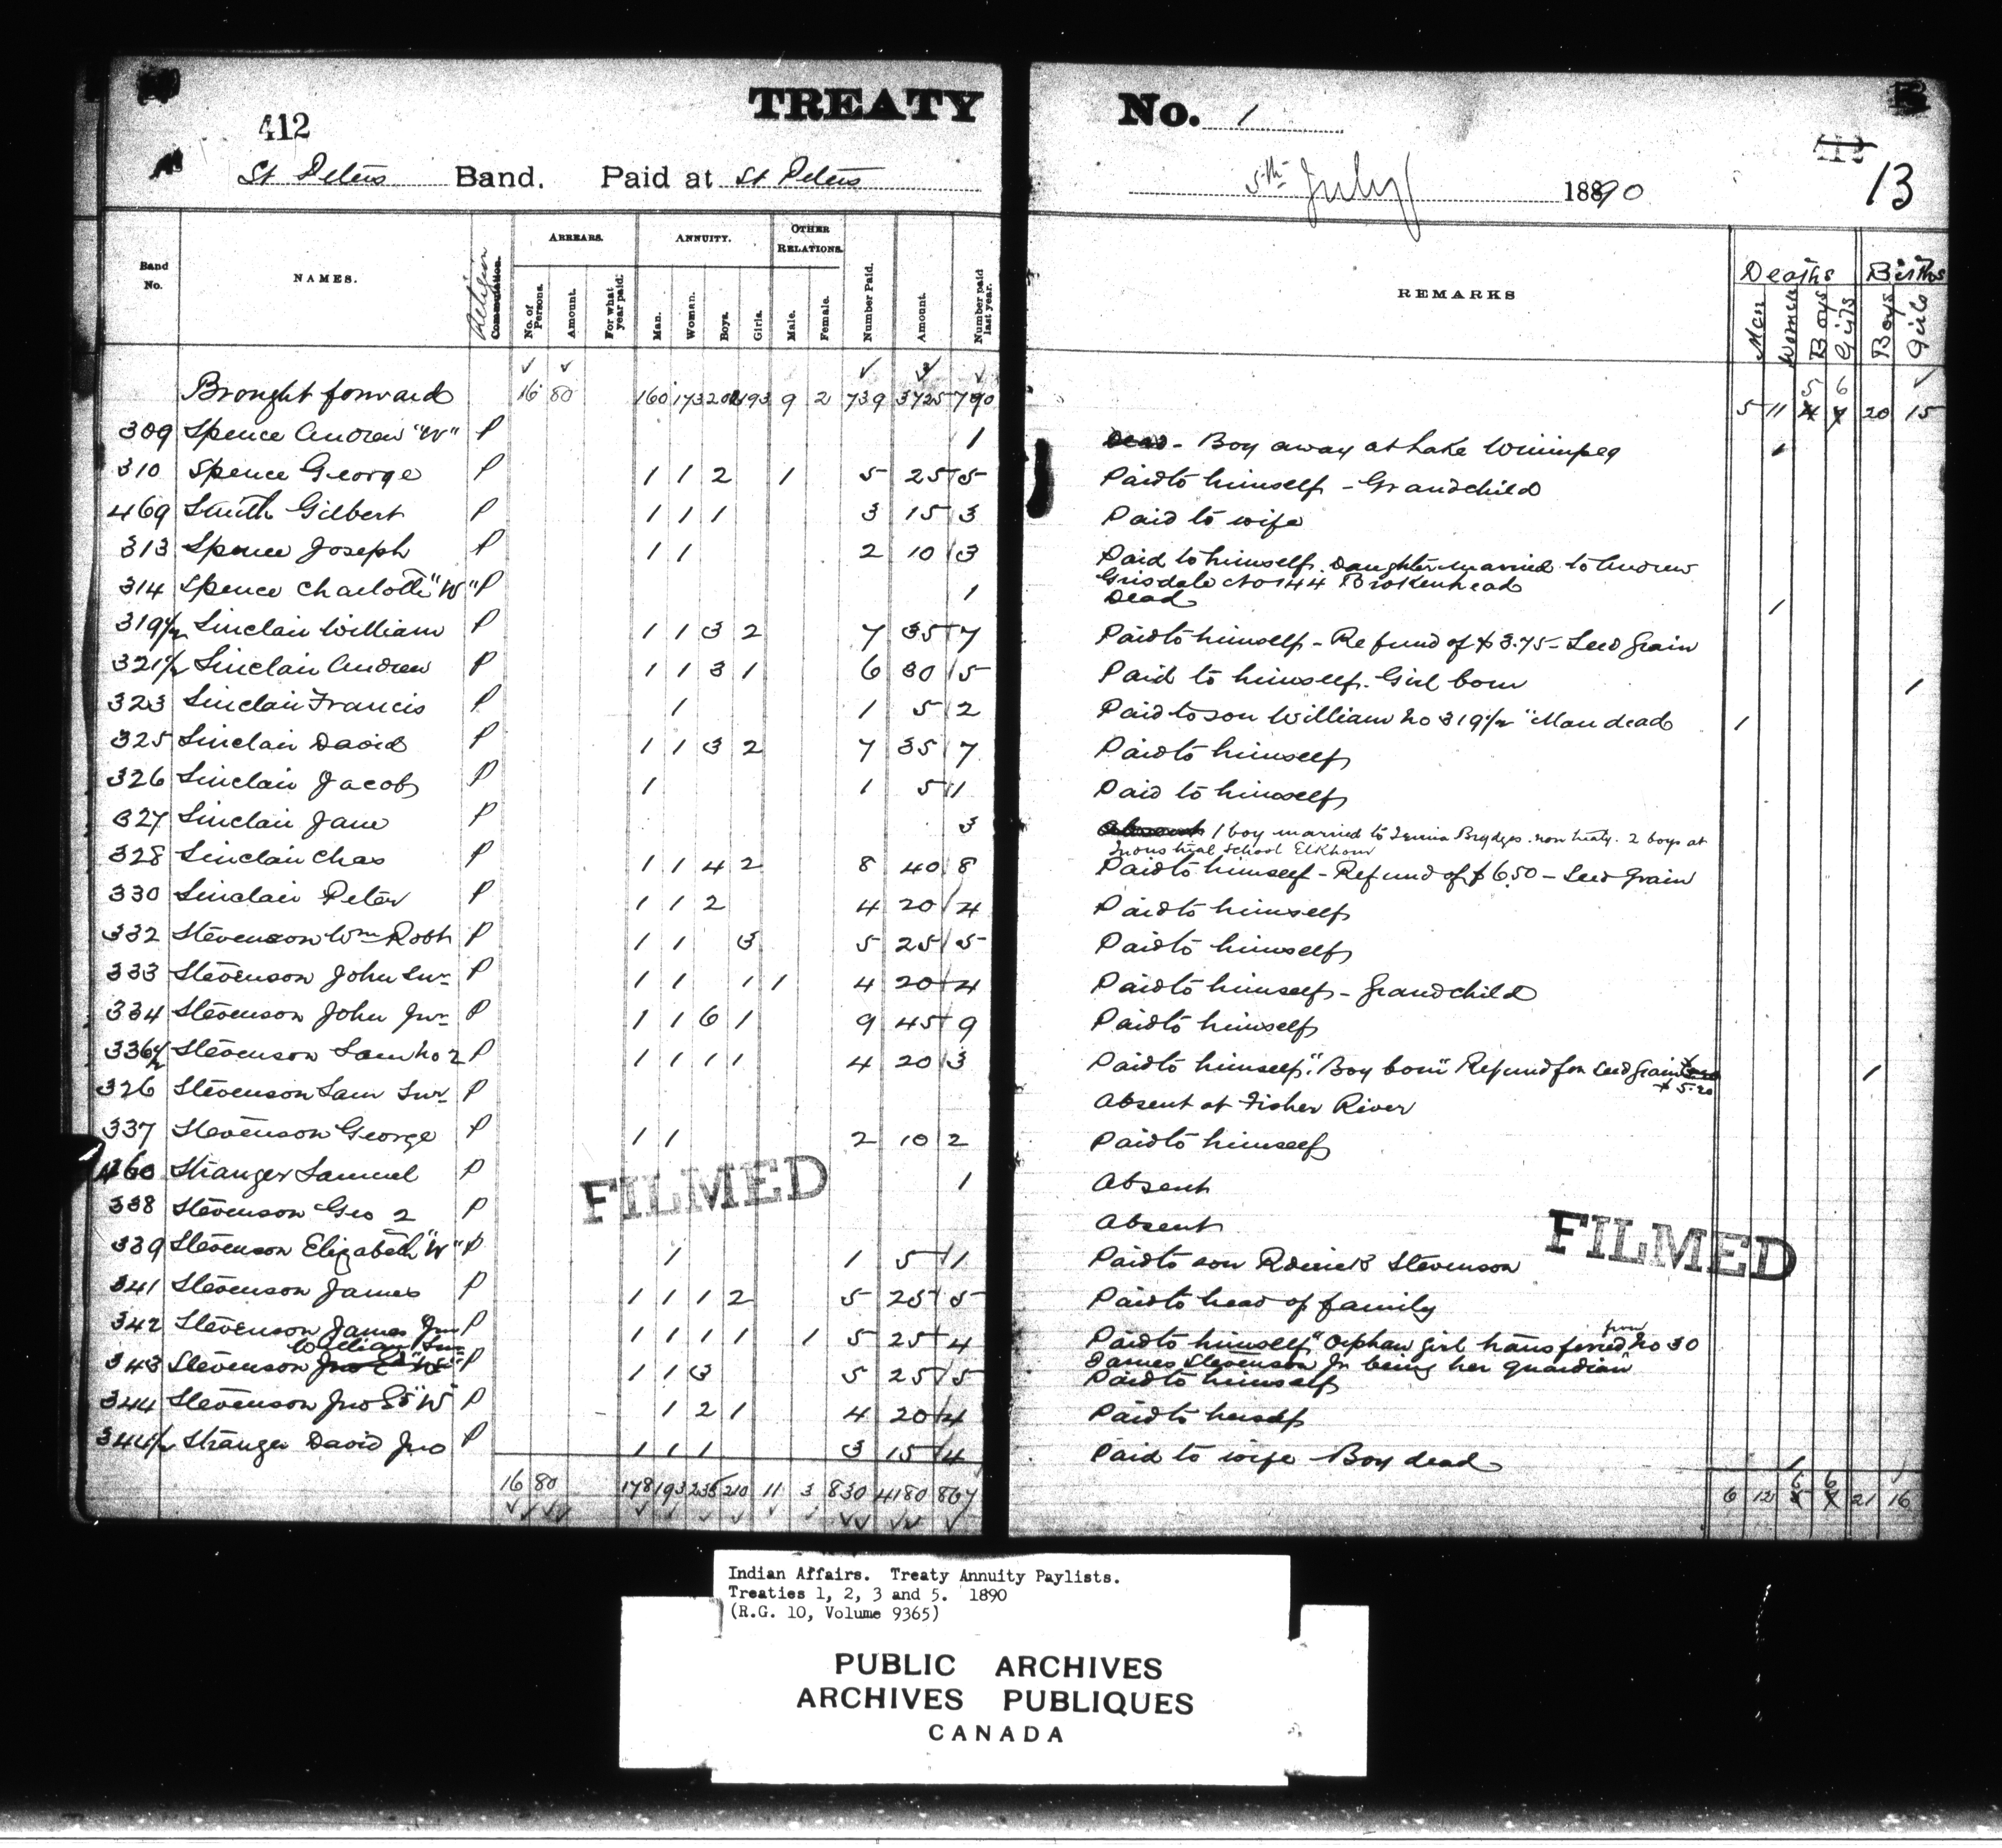 TREATY No. 1
412
412
13
St Peters Band. Paid at St Peters 5th July 1890
Band No. NAMES. Religion Commutation. ARREARS. No. of Persons. Amount. For what year paid. ANNUITY. Man. Woman. Boys. Girls. OTHER RELATIONS. Male. Female. Number Paid. Amount. Number paid last year. REMARKS Deaths Men Women Boys Girls Births Boys Girls
Brought forward 16 80 160 173 193 9 2 739 3725 790 5 11 5 6 20 15
309 Spence Andrew "W" P 1 Boy away at Lake Winnipeg 1
310 Spence George P 1 1 2 1 5 25 5 Paid to himself - Grandchild
469 Smith Gilbert P 1 1 1 3 15 3 Paid to wife
313 Spence Joseph P 1 1 2 10 3 Paid to himself. Daughter married to Andrew
Grisdale No 144 Brokenhead
314 Spence Charlotte "W" P 1 Dead 1
319 1/2 Sinclair William P 1 1 3 2 7 35 7 Paid to himself - Refund of $3.75 - Seed Grain
321 1/2 Sinclair Andrew P 1 1 3 1 6 30 5 Paid to himself. Girl born 1
323 Sinclair Francis P 1 1 5 2 Paid to son William No 319 1/2 "Man dead 1
325 Sinclair David P 1 1 3 2 7 35 7 Paid to himself
326 Sinclair Jacob P 1 1 5 1 Paid to himself
327 Sinclair Jane P 3 1 boy married to Brydges. non treaty. 2 boys at
Industrial School Elkhorn
328 Sinclair Chas P 1 1 4 2 8 40 8 Paid to himself - Refund of $6.50 - Seed Grain
330 Sinclair Peter P 1 1 2 4 20 4 Paid to himself
332 Stevenson Wm Robt P 1 1 3 5 25 5 Paid to himself
333 Stevenson John Snr P 1 1 1 1 4 20 4 Paid to himself - Grandchild
334 Stevenson John Jnr P 1 1 6 1 9 45 9 Paid to himself
336 1/2 Stevenson Sam No 2 P 1 1 1 1 4 20 3 Paid to himself. "Boy born" Refund for Seed Grain 1
$5.20
326 Stevenson Sam Snr P Absent at Fisher River
337 Stevenson George P 1 1 2 10 2 Paid to himself
460 Stranger Samuel P 1 Absent
338 Stevenson Geo 2 P Absent
FILMED FILMED
339 Stevenson Elizabeth "W" P 1 1 5 1 Paid to son Roderick Stevenson
341 Stevenson James P 1 1 1 2 5 25 5 Paid to head of family
342 Stevenson James Jnr P 1 1 1 1 1 5 25 4 Paid to himself "Orphan girl transferred from No 30
James Stevenson Jr being her guardian"
William Snr
343 Stevenson P 1 1 3 5 25 5 Paid to himself
344 Stevenson Jno "W" P 1 2 1 4 20 4 Paid to herself
344 1/2 Stranger David Jno P 1 1 1 3 15 4 Paid to wife - Boy dead 1
16 80 178 193 235 210 11 3 830 4180 867 6 12 6 6 21 16
Indian Affairs. Treaty Annuity Paylists.
Treaties 1, 2, 3 and 5. 1890
(R.G. 10, Volume 9365)
PUBLIC ARCHIVES
ARCHIVES PUBLIQUES
CANADA